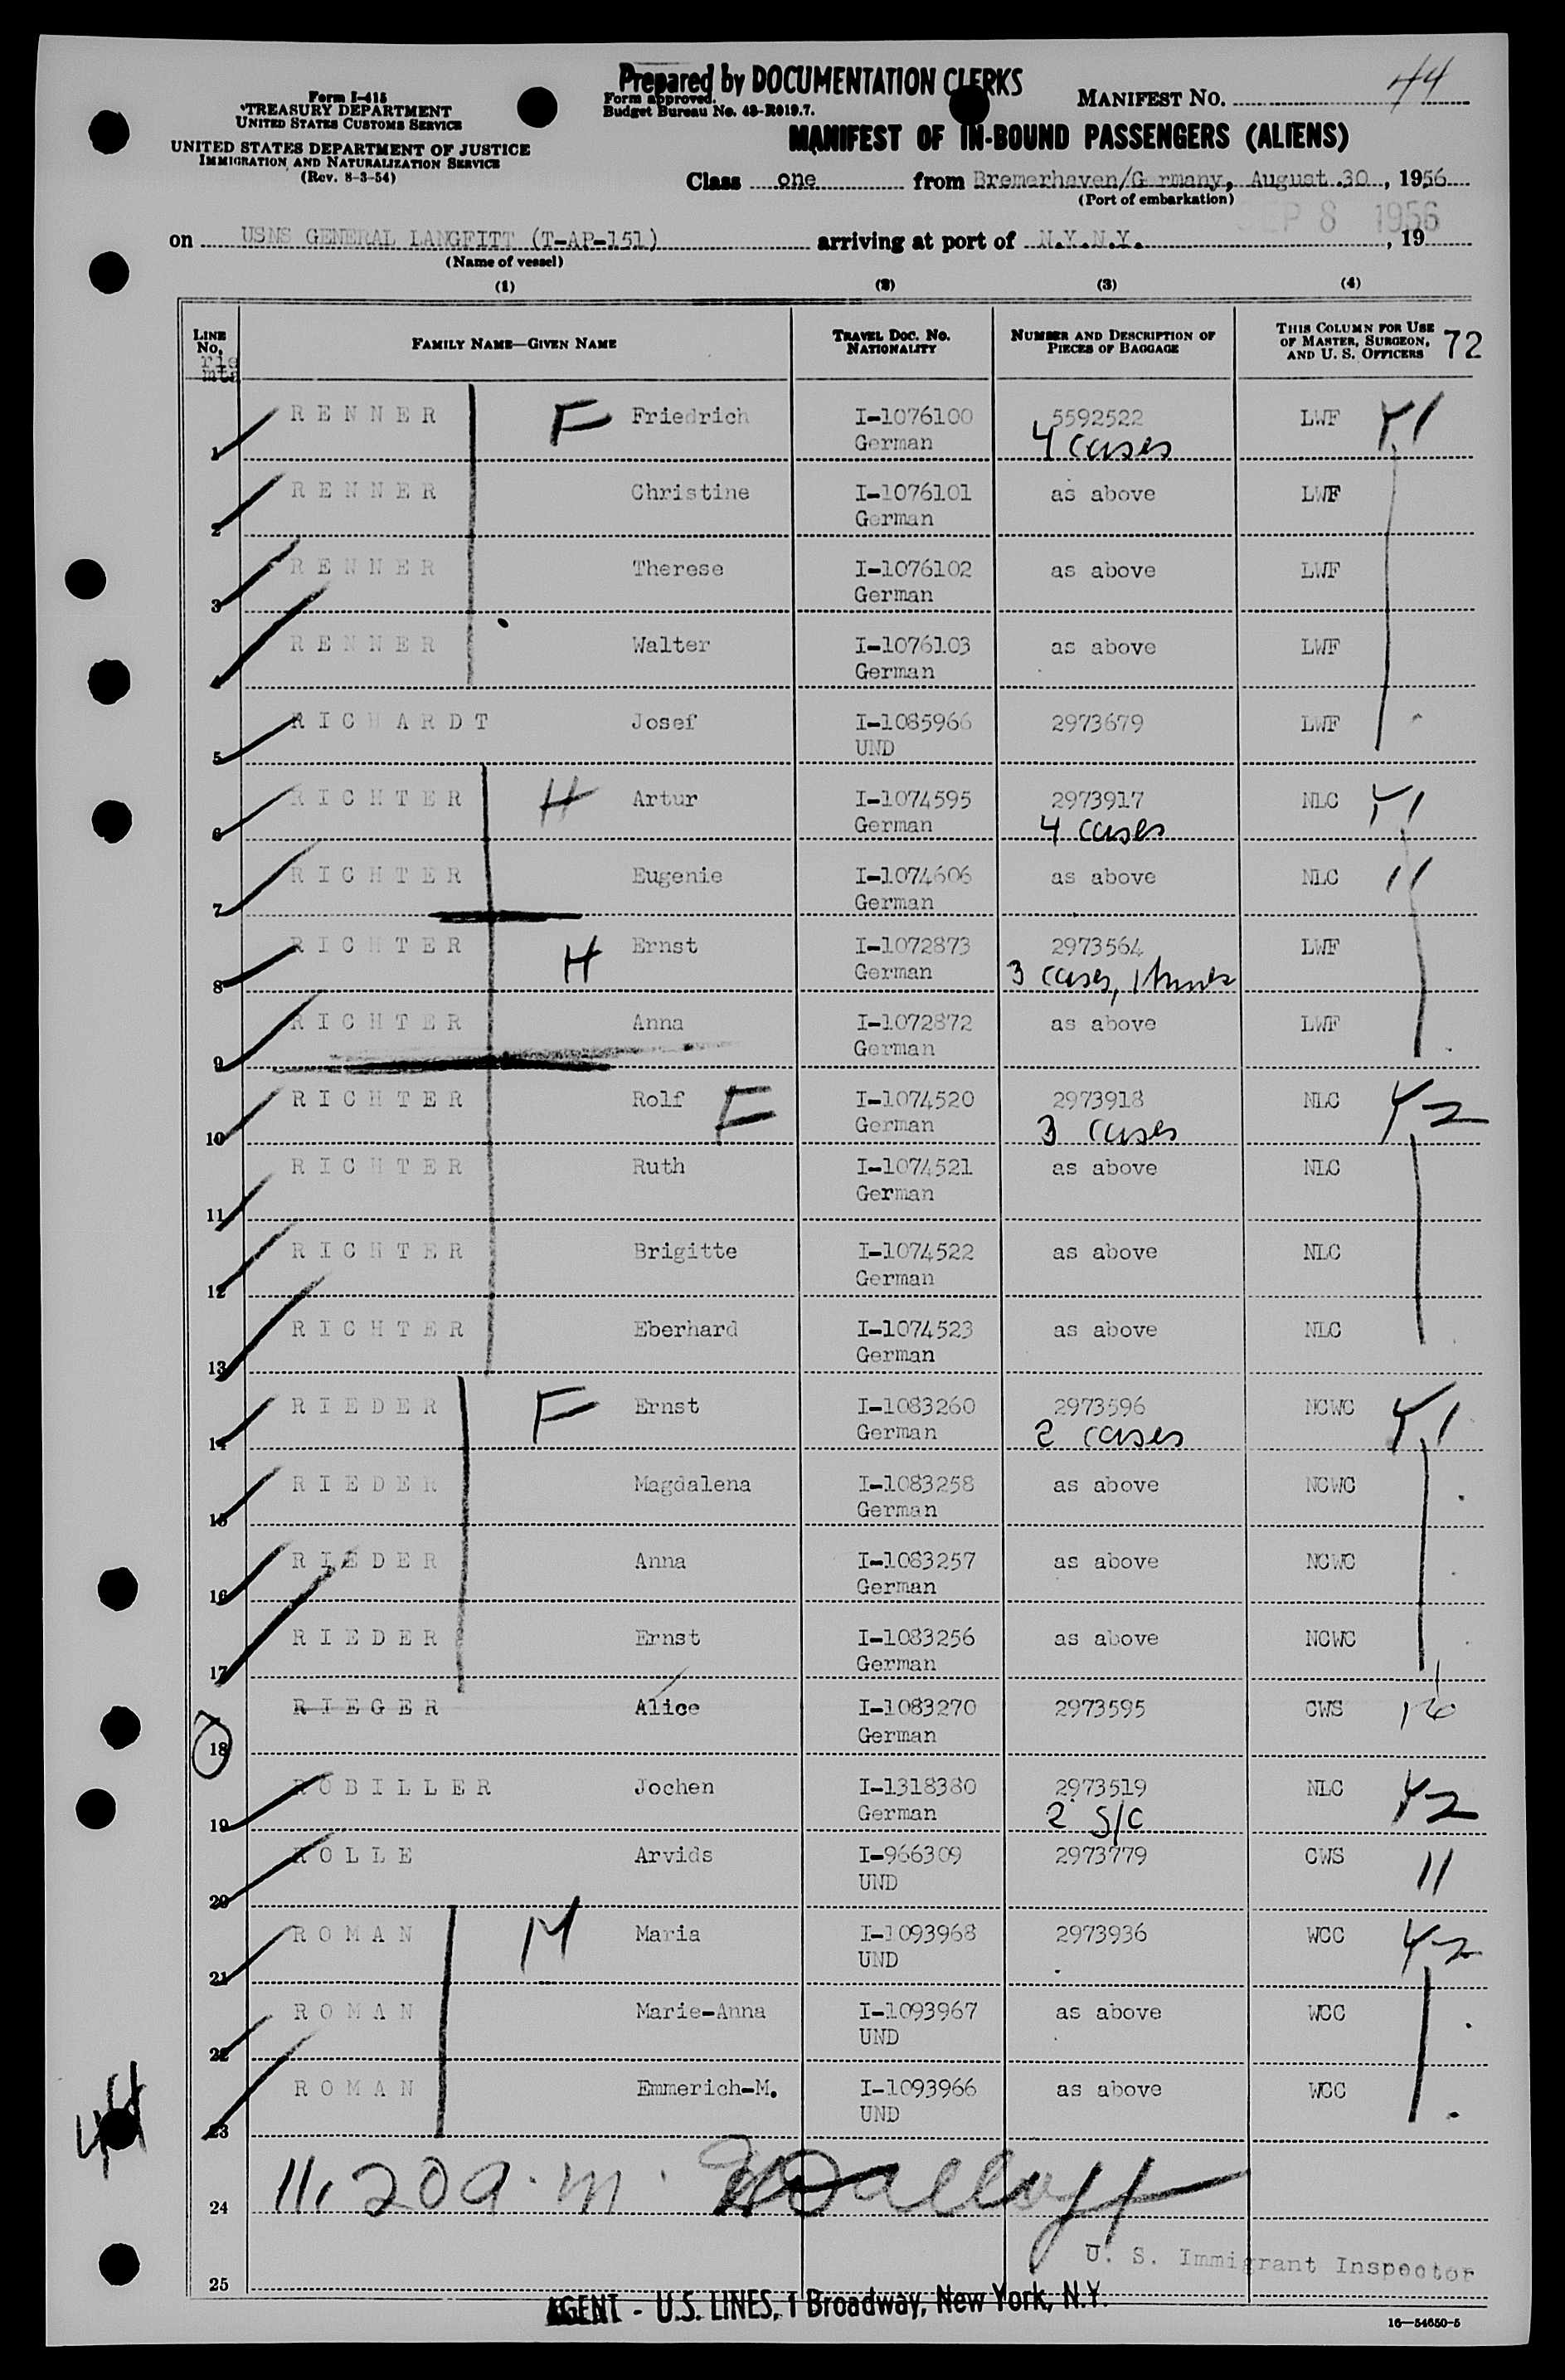 Prepared by DOCUMENTATION CLERKS
Form I-415
TREASURY DEPARTMENT
UNITED STATES CUSTOMS SERVICE
UNITED STATES DEPARTMENT OF JUSTICE
IMMIGRATION AND NATURALIZATION SERVICE
(Rev. 8-3-54)
Form approved.
Budget Bureau No. 43-R019.7.
MANIFEST NO. 44
MANIFEST OF IN-BOUND PASSENGERS (ALIENS)
Class one from Bremerhaven/Germany, August 30, 1956
(Port of embarkation)
SEP 8 1956
on USNS GENERAL LANGFITT (T-AP-151) arriving at port of N.Y.N.Y. , 19
(Name of vessel)
(1) (2) (3) (4)
LINE NO. FAMILY NAME—GIVEN NAME TRAVEL DOC. NO. NATIONALITY NUMBER AND DESCRIPTION OF PIECES OF BAGGAGE THIS COLUMN FOR USE OF MASTER, SURGEON, AND U. S. OFFICERS 72
1 RENNER F Friedrich I-1076100 5592522 LWF
German 4 cases
2 RENNER Christine I-1076101 as above LWF
German
3 RENNER Therese I-1076102 as above LWF
German
RENNER Walter I-1076103 as above LWF
German
5 RICHARDT Josef I-1085966 2973679 LWF
UND
6 RICHTER H Artur I-1074595 2973917 NLC
German 4 cases
7 RICHTER Eugenie I-1074606 as above NLC 11
German
8 RICHTER H Ernst I-1072873 2973564 LWF
German 3 cases, 1
9 RICHTER Anna I-1072872 as above LWF
German
10 RICHTER Rolf F I-1074520 2973918 NLC
German 3 cases
11 RICHTER Ruth I-1074521 as above NLC
German
12 RICHTER Brigitte I-1074522 as above NLC
German
13 RICHTER Eberhard I-1074523 as above NLC
German
14 RIEDER F Ernst I-1083260 2973596 NCWC
German 2 cases
15 RIEDER Magdalena I-1083258 as above NCWC
German
16 RIEDER Anna I-1083257 as above NCWC
German
17 RIEDER Ernst I-1083256 as above NCWC
German
18 RIEGER Alice I-1083270 2973595 CWS
German
19 ROBILLER Jochen I-1318380 2973519 NLC
German 2 S/C
20 ROLLE Arvids I-966309 2973779 CWS 11
UND
21 ROMAN M Maria I-1093968 2973936 WCC
UND
22 ROMAN Marie-Anna I-1093967 as above WCC
UND
23 ROMAN Emmerich-M. I-1093966 as above WCC
UND
44
24 11.20 a.m.
U. S. Immigrant Inspector
25
AGENT - U.S. LINES, 1 Broadway, New York, N.Y.
16—54650-5